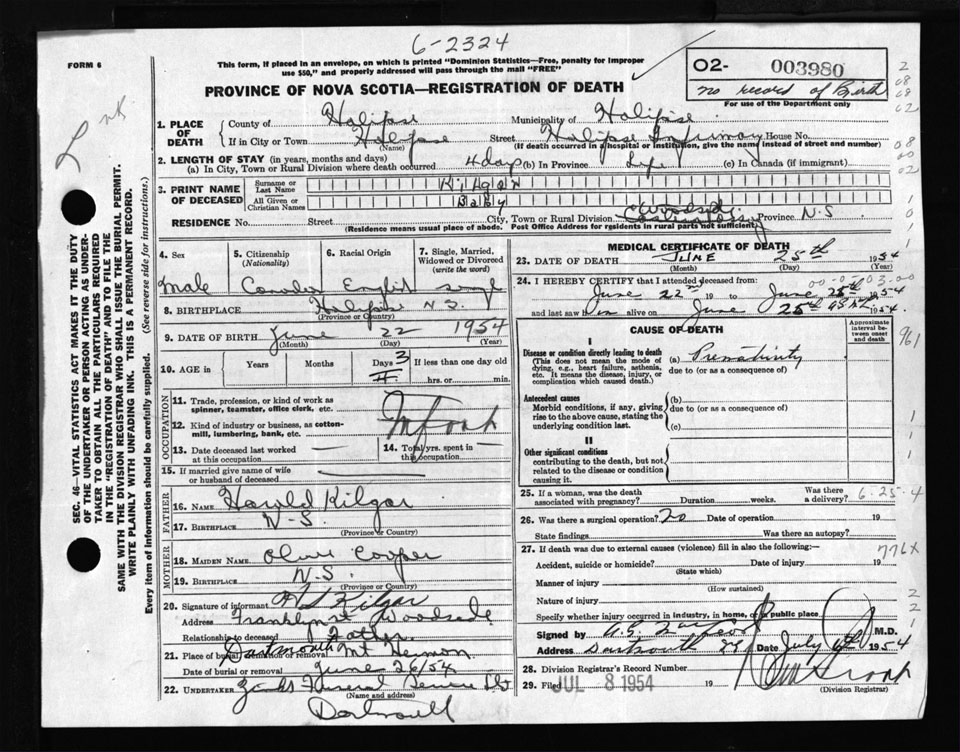 6-2324
FORM 6
This form, if placed in an envelope, on which is printed "Dominion Statistics—Free, penalty for improper
use $50," and properly addressed will pass through the mail "FREE"
PROVINCE OF NOVA SCOTIA—REGISTRATION OF DEATH
O2- 003980
no record of Birth
For use of the Department only
1. PLACE OF DEATH
County of Halifax Municipality of Halifax
If in City or Town Halifax Street Halifax Infirmary House No.
(Name) (If death occurred in a hospital or institution, give the name instead of street and number)
2. LENGTH OF STAY (in years, months and days)
(a) In City, Town or Rural Division where death occurred 4 days (b) In Province Life (c) In Canada (if immigrant)
3. PRINT NAME OF DECEASED
Surname or Last Name Kilgar
All Given or Christian Names Baby
RESIDENCE No. Street City, Town or Rural Division Woodside Province N.S
(Residence means usual place of abode. Post Office Address for residents in rural parts not sufficient)
SEC. 46—VITAL STATISTICS ACT MAKES IT THE DUTY
OF THE UNDERTAKER OR PERSON ACTING AS UNDER-
TAKER TO OBTAIN ALL THE PARTICULARS REQUIRED
IN THE "REGISTRATION OF DEATH" AND TO FILE THE
SAME WITH THE DIVISION REGISTRAR WHO SHALL ISSUE THE BURIAL PERMIT.
WRITE PLAINLY WITH UNFADING INK. THIS IS A PERMANENT RECORD.
Every item of information should be carefully supplied. (See reverse side for instructions.)
4. Sex
Male
5. Citizenship
(Nationality)
6. Racial Origin
English
7. Single, Married,
Widowed or Divorced
(write the word)
single
8. BIRTHPLACE Halifax N S.
(Province or Country)
9. DATE OF BIRTH June 22 1954
(Month) (Day) (Year)
10. AGE in Years Months Days 3 If less than one day old
hrs. or min.
OCCUPATION
11. Trade, profession, or kind of work as
spinner, teamster, office clerk, etc.
12. Kind of industry or business, as cotton-
mill, lumbering, bank, etc.
13. Date deceased last worked
at this occupation
14. Total yrs. spent in
this occupation
15. If married give name of wife
or husband of deceased
FATHER
16. NAME Harold Kilgar
17. BIRTHPLACE N-S.
(Province or Country)
MOTHER
18. MAIDEN NAME Olive Cooper
19. BIRTHPLACE N.S.
(Province or Country)
20. Signature of informant H S Kilgar
Address Franklyn St Woodside
Relationship to deceased Father
21. Place of burial, cremation or removal Dartmouth Mt Hermon
Date of burial or removal June 26/54
22. UNDERTAKER Funeral Service Ltd
(Name and address)
Dartmouth
MEDICAL CERTIFICATE OF DEATH
23. DATE OF DEATH JUNE 25th 1954
(Month) (Day) (Year)
24. I HEREBY CERTIFY that I attended deceased from
June 22nd 19 to June 25th 1954
and last saw him alive on June 25th 1954
CAUSE OF DEATH
Approximate
interval between
onset and death
I
Disease or condition directly leading to death
(This does not mean the mode of
dying, e.g., heart failure, asthenia,
etc. It means the disease, injury, or
complication which caused death.)
(a) Prematurity
due to (or as a consequence of)
Antecedent causes
Morbid conditions, if any, giving
rise to the above cause, stating the
underlying condition last.
(b)
due to (or as a consequence of)
(c)
II
Other significant conditions
contributing to the death, but not
related to the disease or condition
causing it.
25. If a woman, was the death
associated with pregnancy? Duration weeks. Was there a delivery? 6-25-4
26. Was there a surgical operation? no Date of operation 19
State findings Was there an autopsy?
27. If death was due to external causes (violence) fill in also the following:— 776X
Accident, suicide or homicide? Date of injury 19
(State which)
Manner of injury
(How sustained)
Nature of injury
Specify whether injury occurred in industry, in home, or in public place
Signed by M.D.
Address Dartmouth Date July 1954
28. Division Registrar's Record Number
29. Filed JUL 8 1954 19
(Division Registrar)